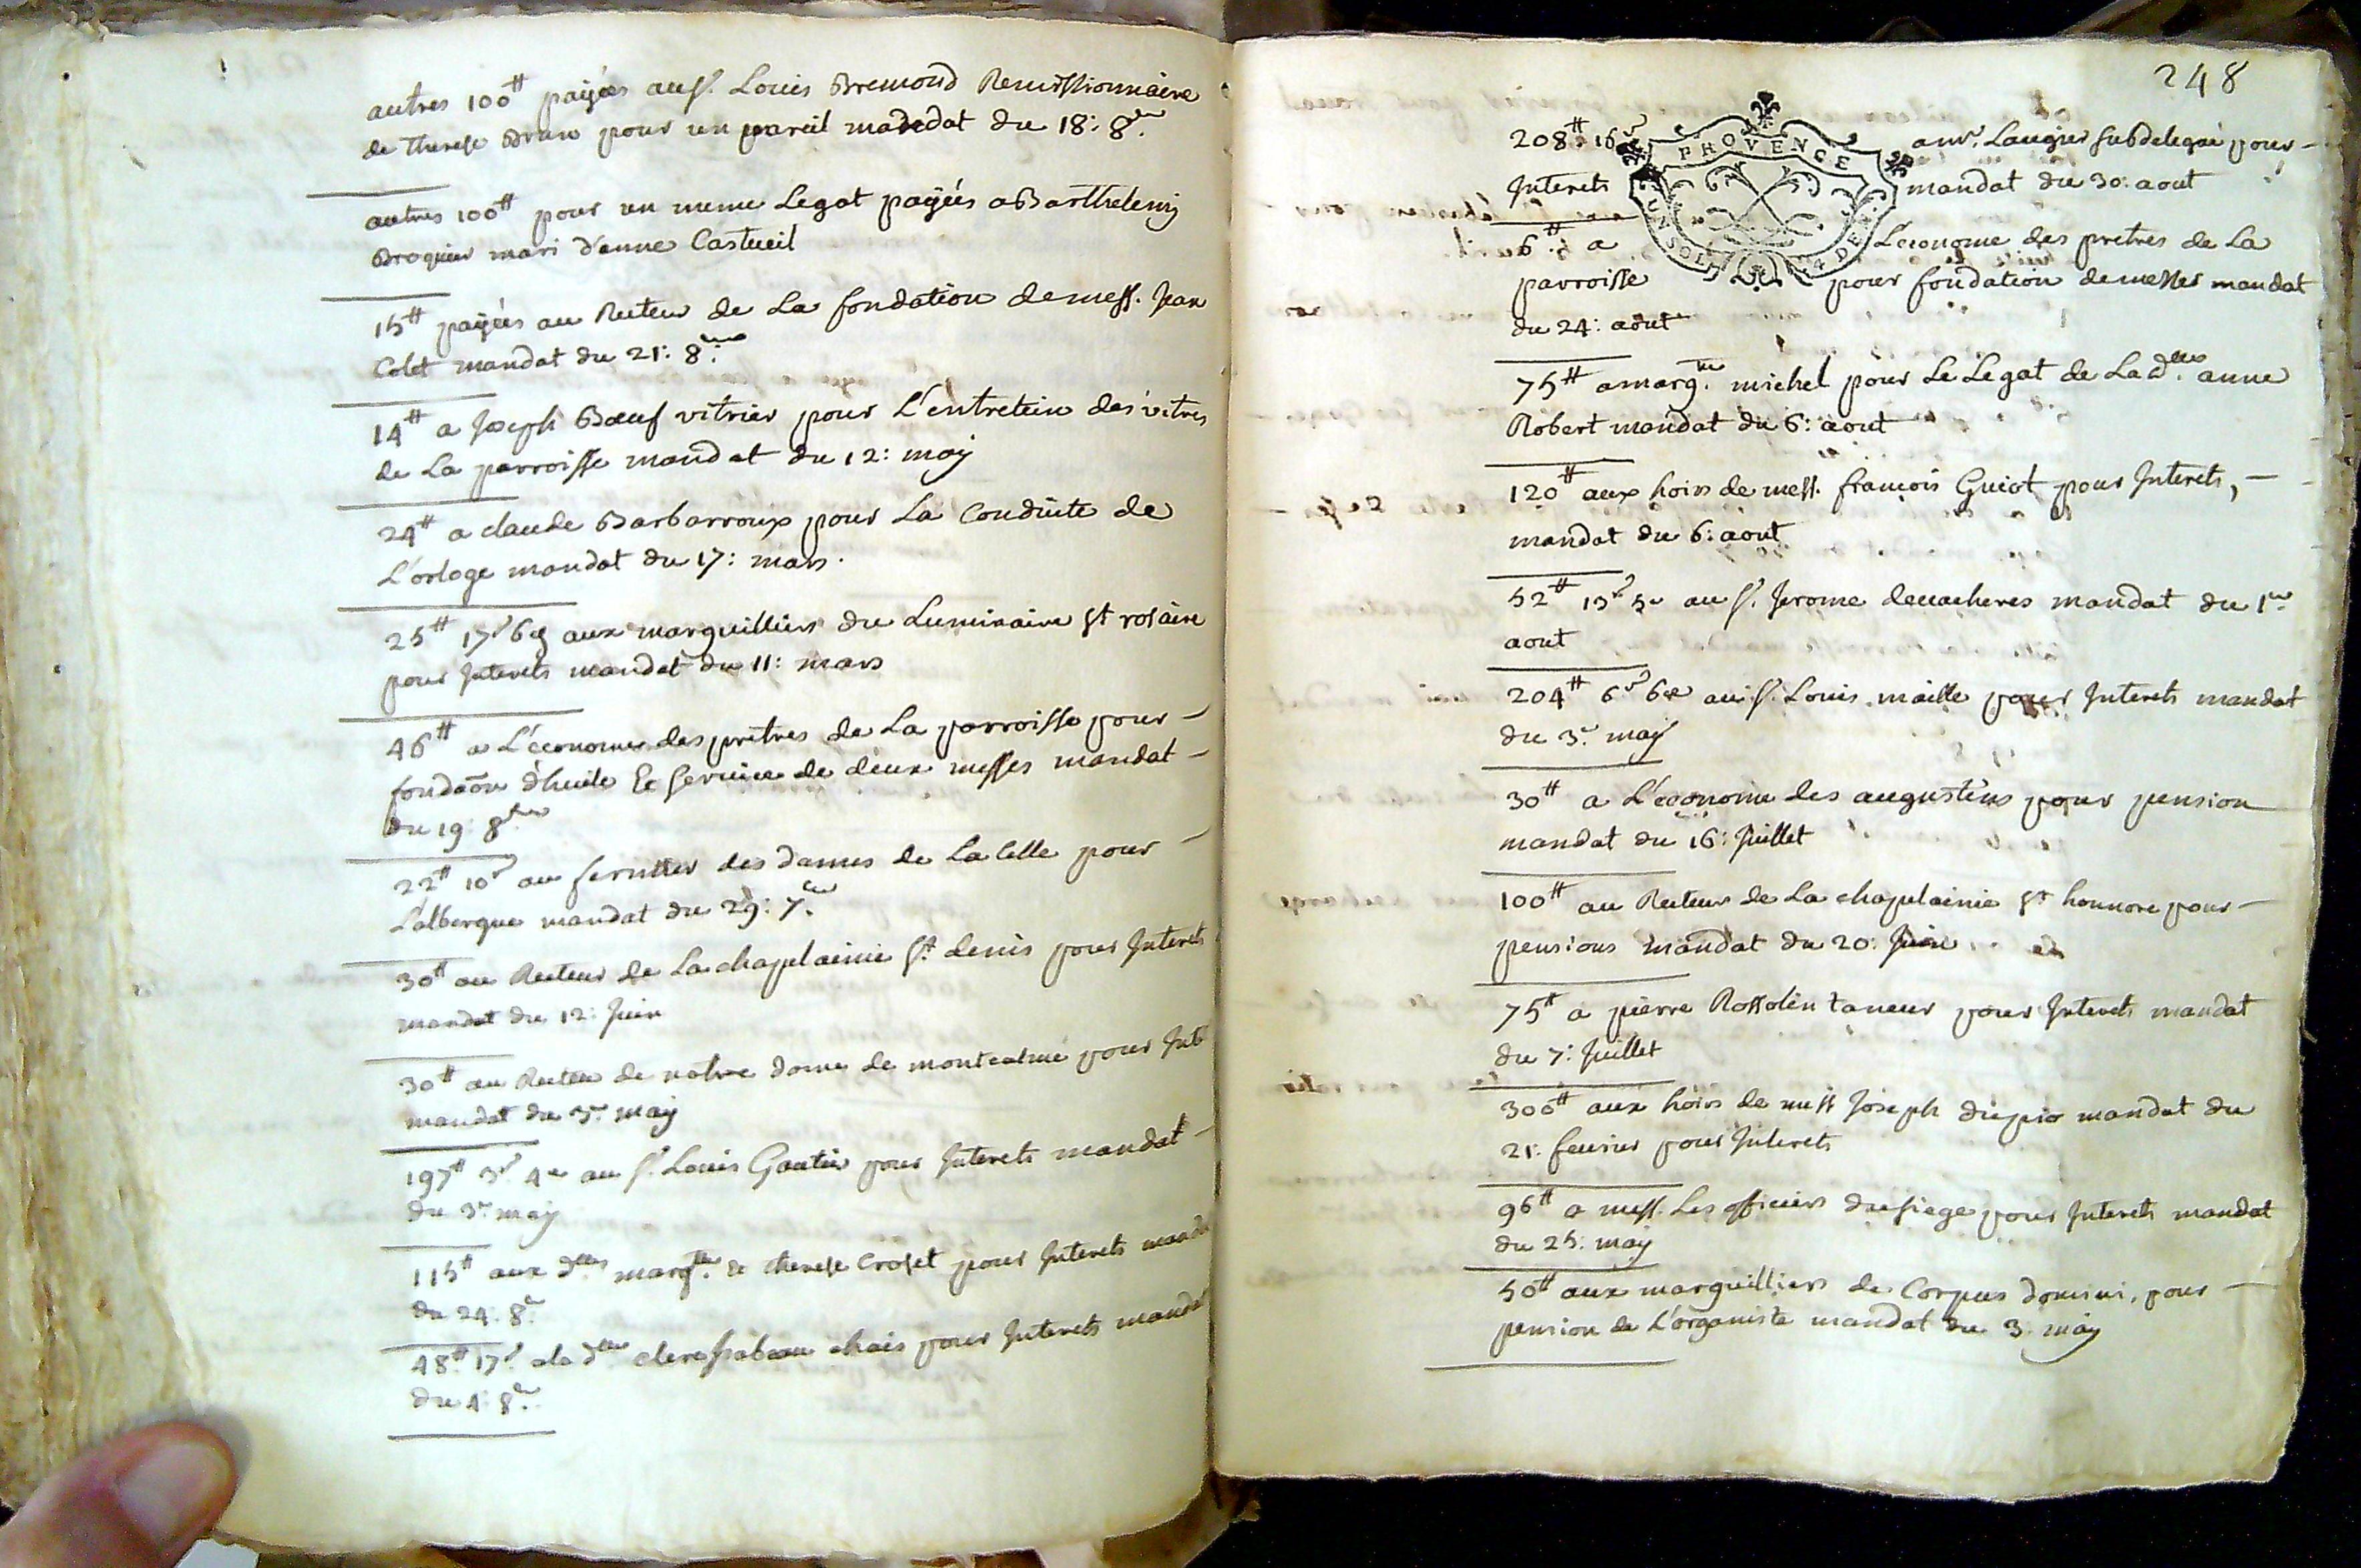 autres 100# payées au s.r Louis Bremond Remissionnaire
de Therese Brun pour un pareil mandat du 18: 8bre
autres 100# pour un meme Legat payées a Barthelemy
Broquier mari d'anne Castueil
15# payées au Recteur de La fondation de mess. Jean
Colet mandat du 21: 8bre
14# a Joseph Bœuf vitrier pour L'entretein des vitres
de La parroisse mandat du 12: may
24# a claude Barbarroux pour La Conduite de
L'orloge mandat du 17: mars.
25# 17s 6d aux marguilliers du Luminaire st rosaire
pour Interets mandat du 11: mars
46# a L'économe des pretres de La parroisse pour -
fondaōn d'huile & service de deux messes mandat -
du 19: 8bre
22# 10s au fermier des dames de La Celle pour -
L'albergue mandat du 29: 7bre
30# au Recteur de La chaplainie st. denis pour Interets
mandat du 12: Juin
30# au Recteur de notre dame de montealme pour Int
mandat du 3e may
197# 3s 4d au s.r Louis Gautier pour Interets mandat -
du 3e may
115# aux dlles margte & therese Croset pour Interets manda
du 24: 8bre
48# 17s a la dlle chais pour Interets mandat
du 4: 8bre
248
PROVENCE
208# 16s a mr. Laugier subdelegué pour -
Interets mandat du 30: aout
6# a L'économe des pretres de La
parroisse pour fondation de messes mandat
du 24: aout
75# a margte michel pour Le Legat de La dlle anne
Robert mandat du 6: aout
120# aux hoirs de mess. francois Guiot pour Interets, -
mandat du 6: aout
52# 13s 5d au s.r Jerome devacheres mandat du 1er
aout
204# 6s 6d au s.r Louis maille pour Interets mandat
du 3e may
30# a L'économe des augustins pour pension
mandat du 16: Juillet
100# au Recteur de La chaplainie st honnore pour -
pensions mandat du 20: Juin
75# a pierre Rossolin taneur pour Interets mandat
du 7: Juillet
300# aux hoirs de mess Joseph dupio mandat du
21: fevrier pour Interets
96# a mess. Les officiers du siege pour Interets mandat
du 25: may
50# aux marguilliers de Corpus domini, pour -
pension de L'organiste mandat du 3: may